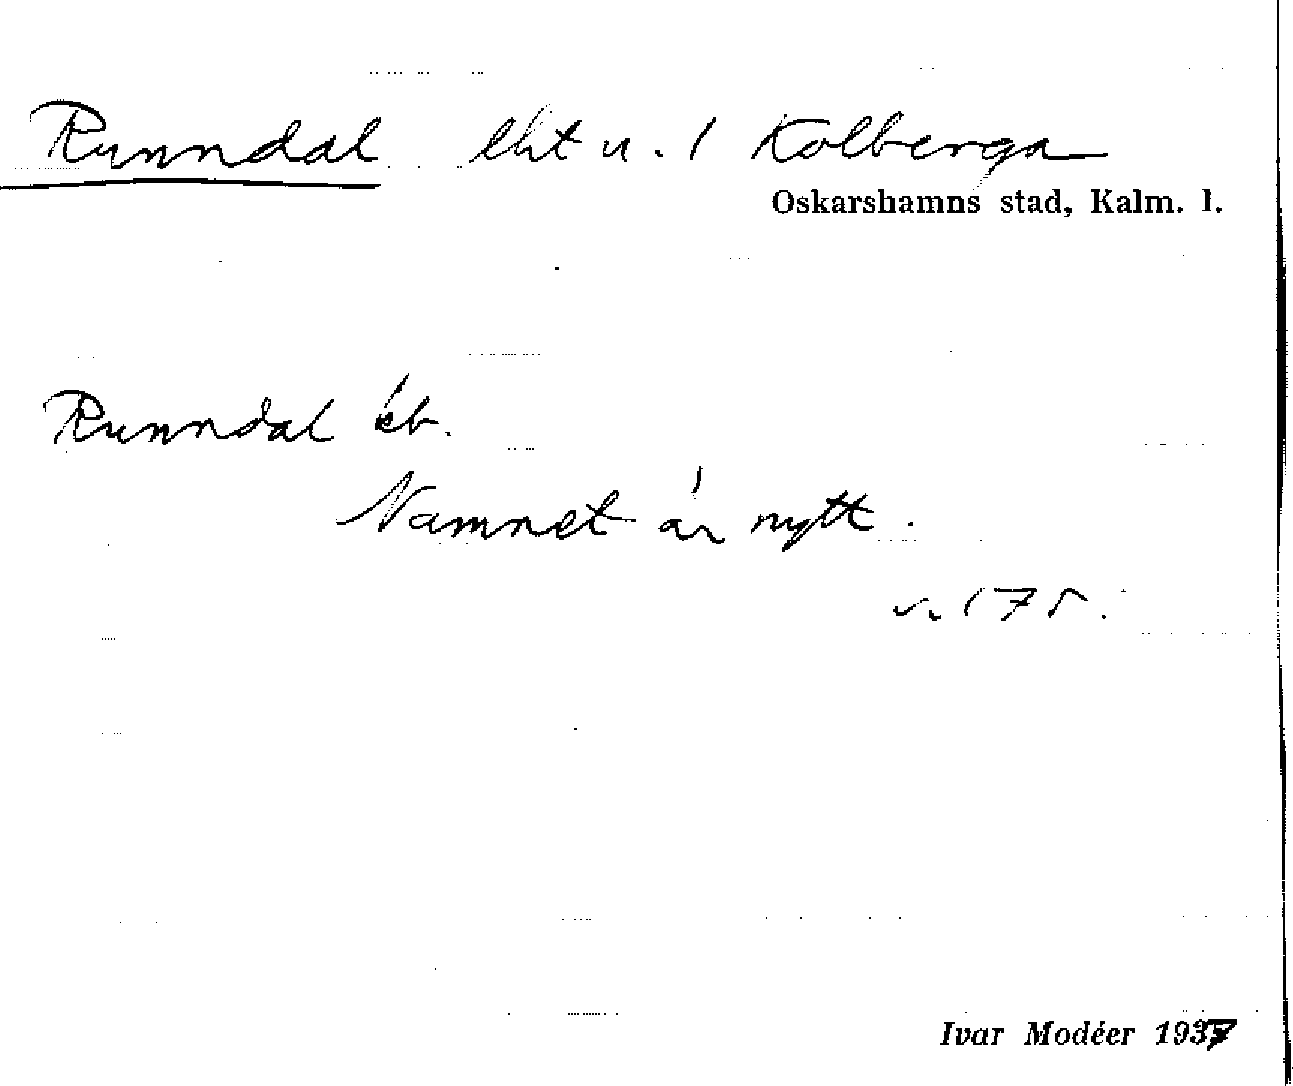 Runndal lht u. 1 Kolberga
Oskarshamns stad, Kalm. l.
Runndal kb.
Namnet är nytt.
s. 175.
Ivar Modéer 1937